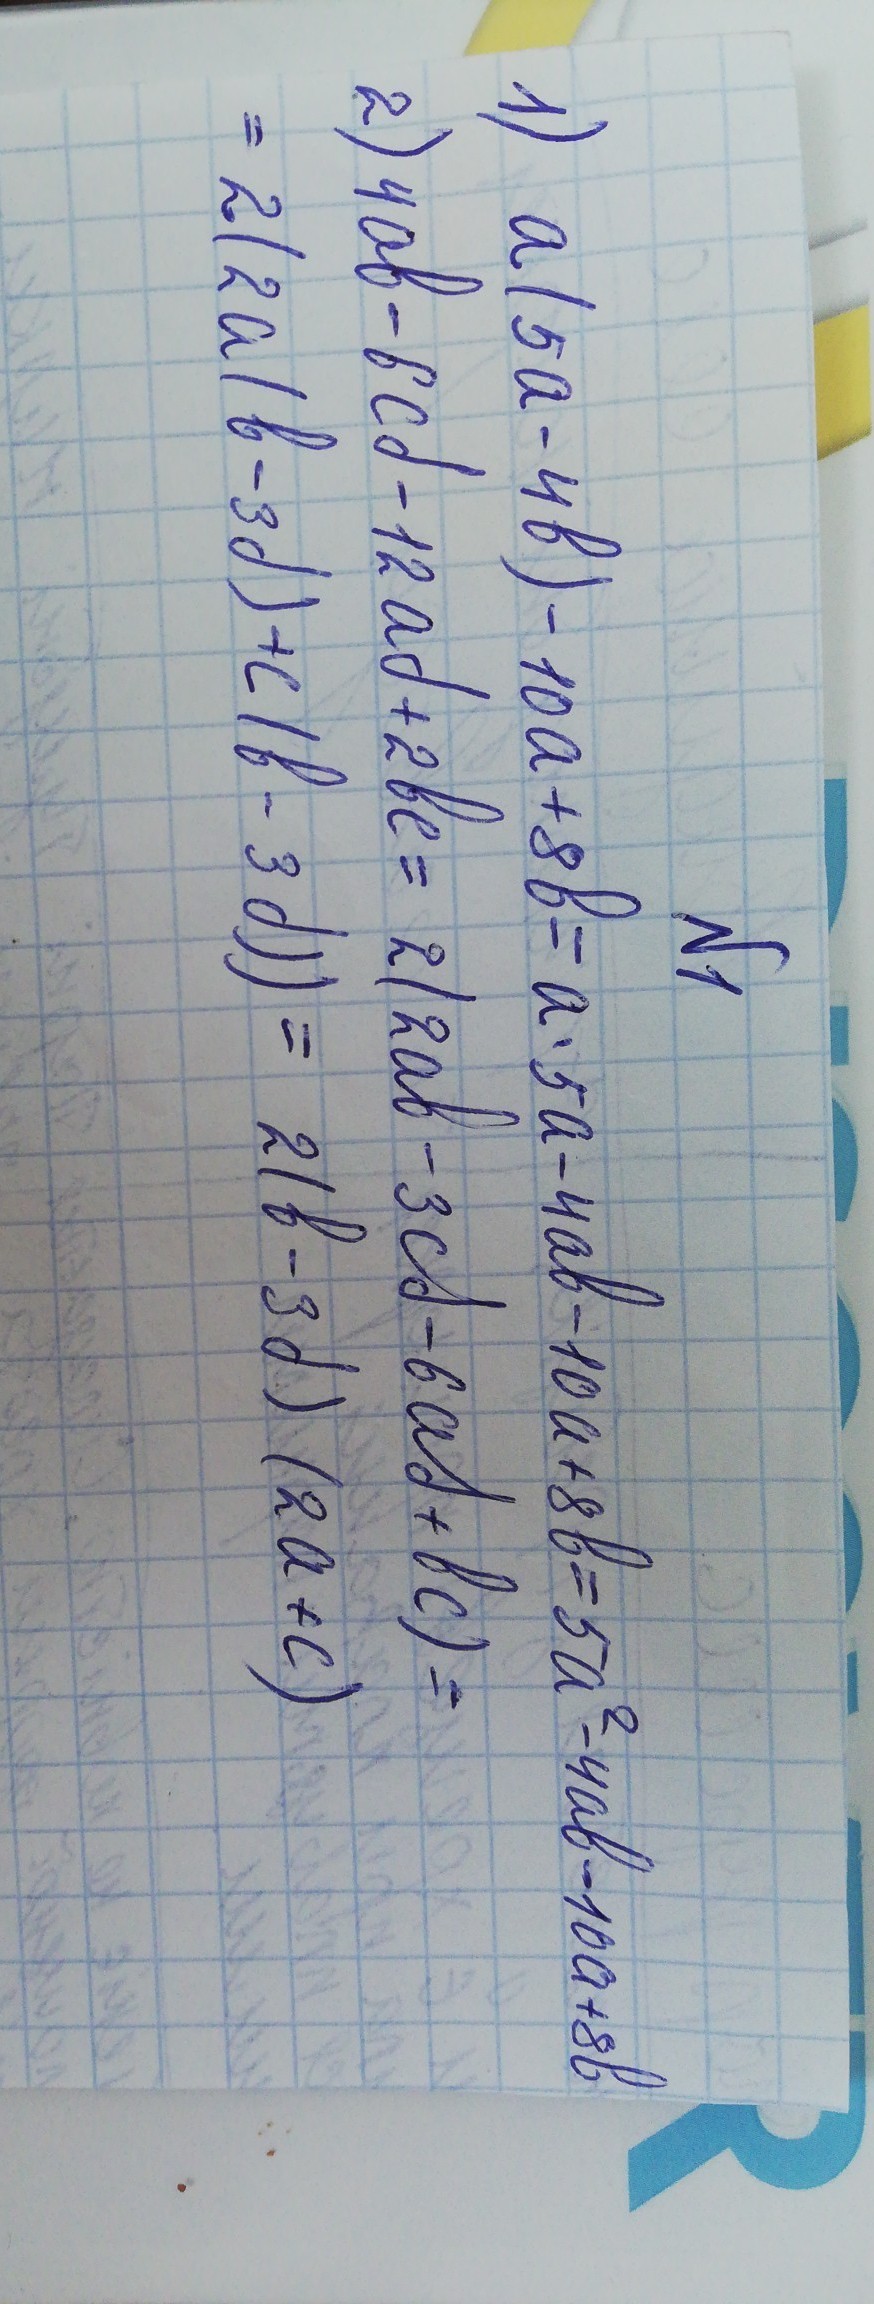 №1
1) a(5a-4b)-10a+8b=a·5a-4ab-10a+8b=5a²-4ab-10a+8b
2) 4ab-6cd-12ad+2bc=2(2ab-3cd-6ad+bc)=
=2(2a(b-3d)+c(b-3d))=2(b-3d)(2a+c)